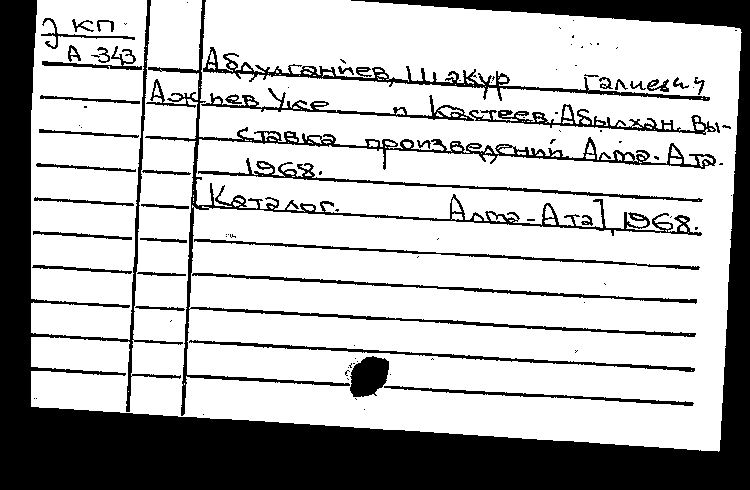 Э КП
А-343
Абдулганиев, Шакур Галиевич
Ажиев, Уке и Кастеев, Абылхан. Вы-
ставка произведений. Алма-Ата.
1968.
[Каталог. Алма-Ата], 1968.